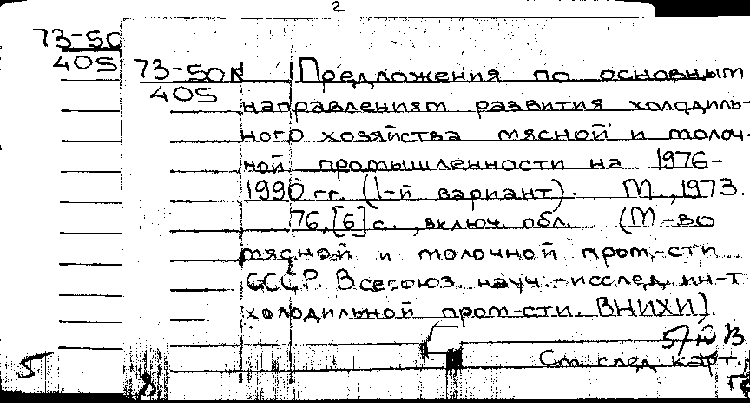 2
73-50
405
73-50к Предложения по основным
405
направлениям развития холодиль-
ного хозяйства мясной и молоч-
ной промышленности на 1976-
1990 гг. (1-й вариант). М., 1973.
76, [6] с., включ. обл. (М-во
мясной и молочной пром-сти
СССР. Всесоюз. науч.-исслед. ин-т
холодильной пром-сти. ВНИХИ)
См. след. карт.
5
8